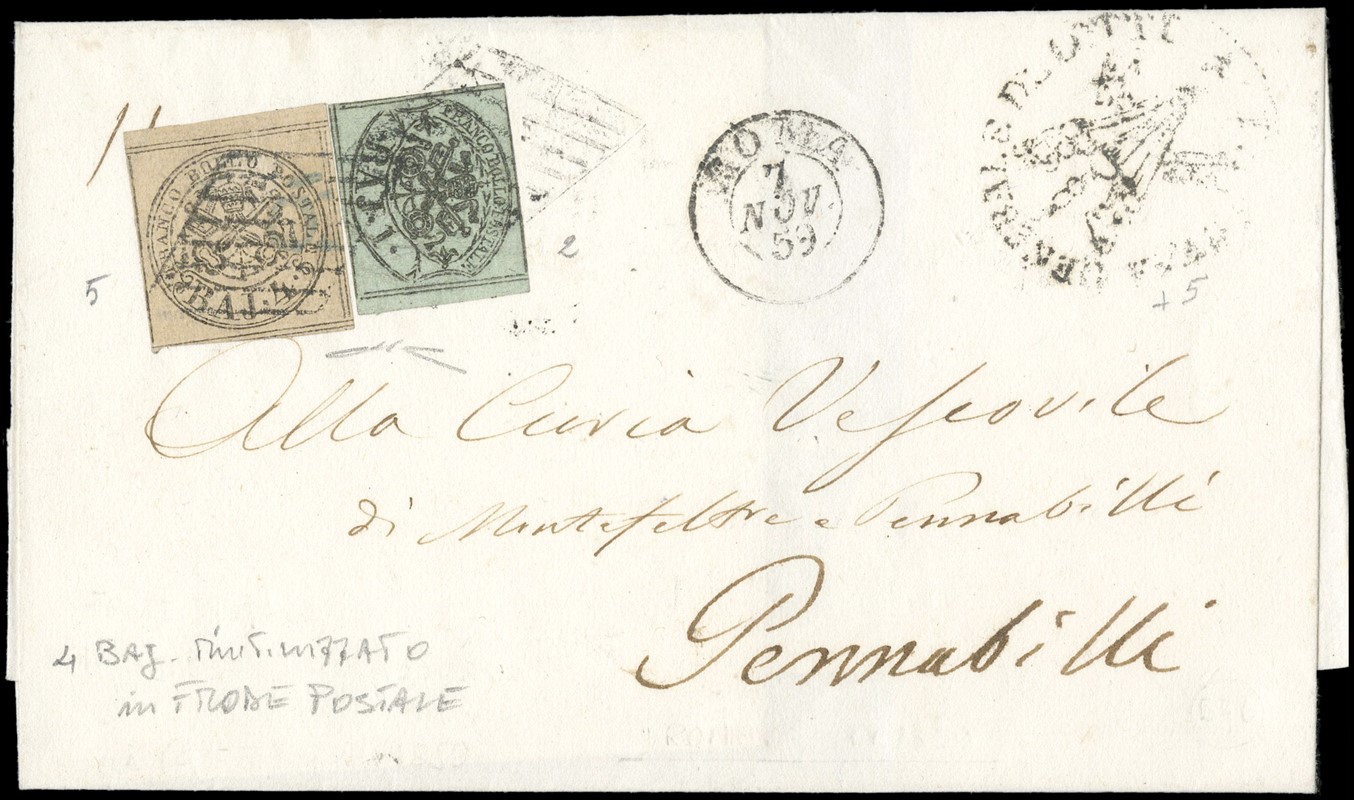 FRANCO BOLLO POSTALE
BAJ. 4.
FRANCO BOLLO POSTALE
BAJ. 1.
ROMA
7
NOV.
59
5
2
+5
Alla Curia Vescovile
di Montefeltre e Pennabilli
Pennabilli
4 BAJ.
in FRODE POSTALE